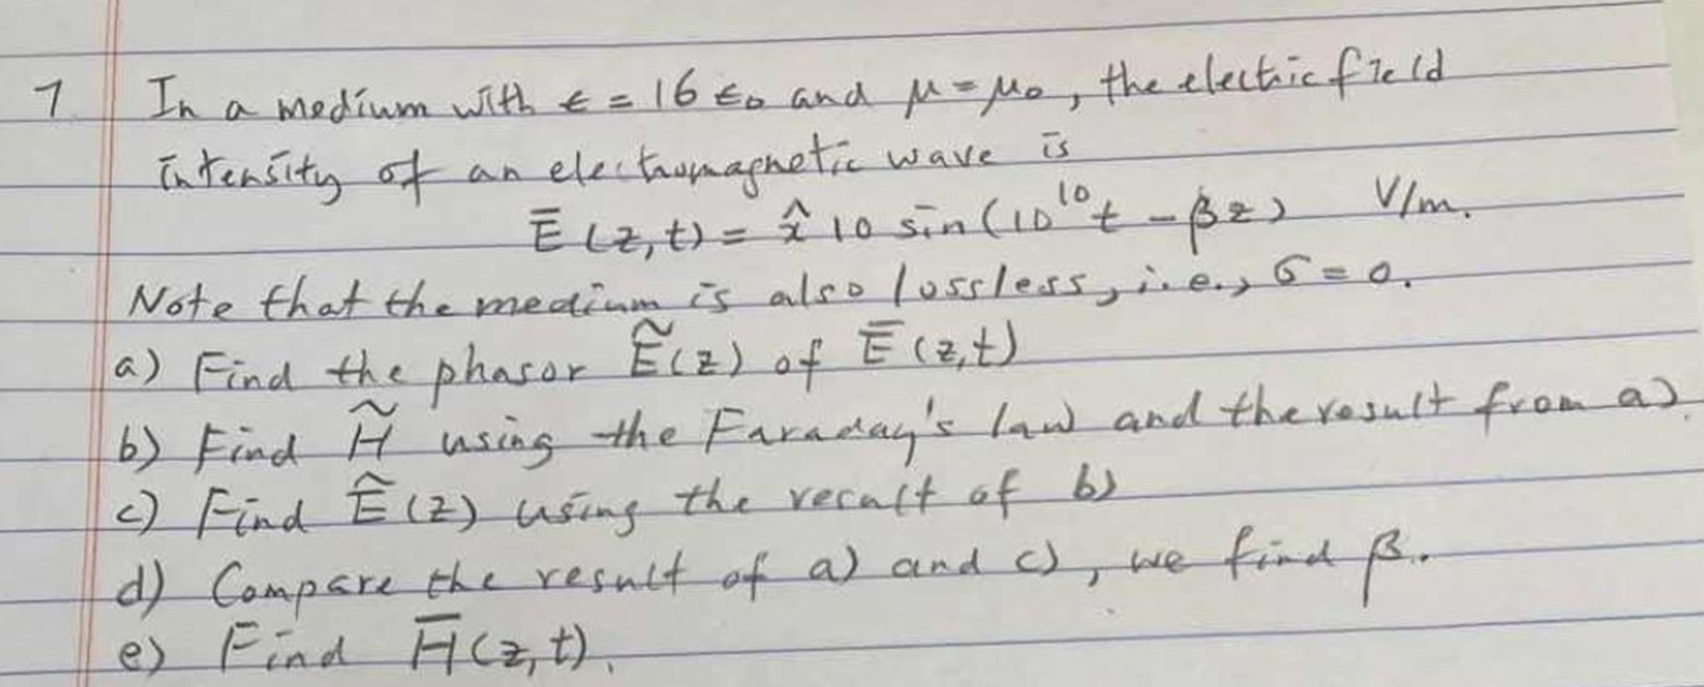 1. In a medium with ε = 16 ε₀ and μ = μ₀, the electric field
intensity of an electromagnetic wave is
Ē(z,t) = x̂ 10 sin(10¹⁰t - βz) V/m.
Note that the medium is also lossless, i.e., σ = 0.
a) Find the phasor Ẽ(z) of Ē(z,t)
b) Find H̃ using the Faraday's law and the result from a).
c) Find Ẽ(z) using the result of b)
d) Compare the result of a) and c), we find β.
e) Find H̄(z,t).